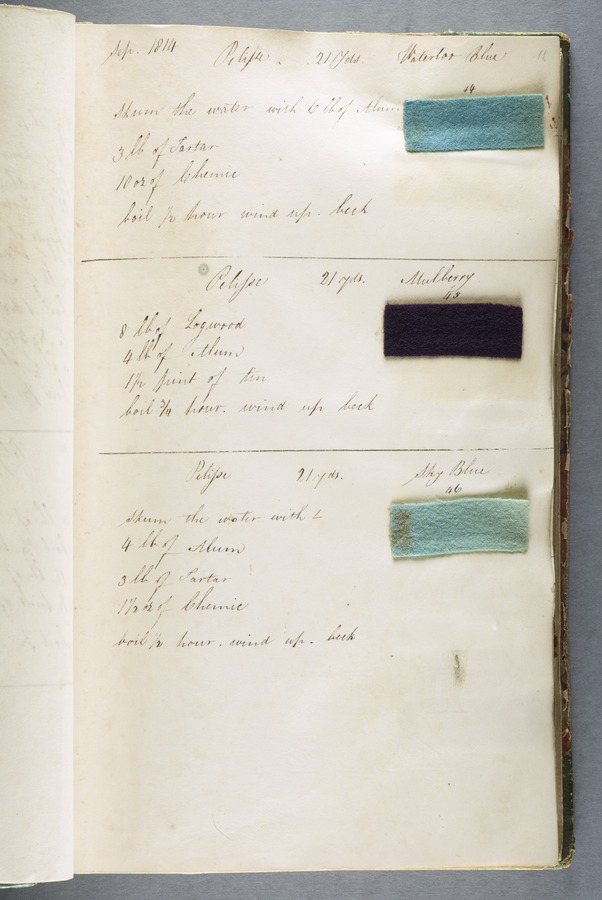 Sep. 1814 Pelisse. 21 Yds. Waterloo Blue
44
Skum the water with 6 lb of Alum
3 lb of Tartar
10 oz of Chemic
boil 1/2 hour wind up - beck
Pelisse 21 yds. Mulberry
45
8 lb of Logwood
4 lb of Alum
1 1/2 pint of tin
boil 3/4 hour. wind up beck
Pelisse 21 yds. Sky Blue
46
skum the water with
4 lb of Alum
3 lb of Tartar
1 1/2 oz of Chemic
boil 1/2 hour - wind up - beck